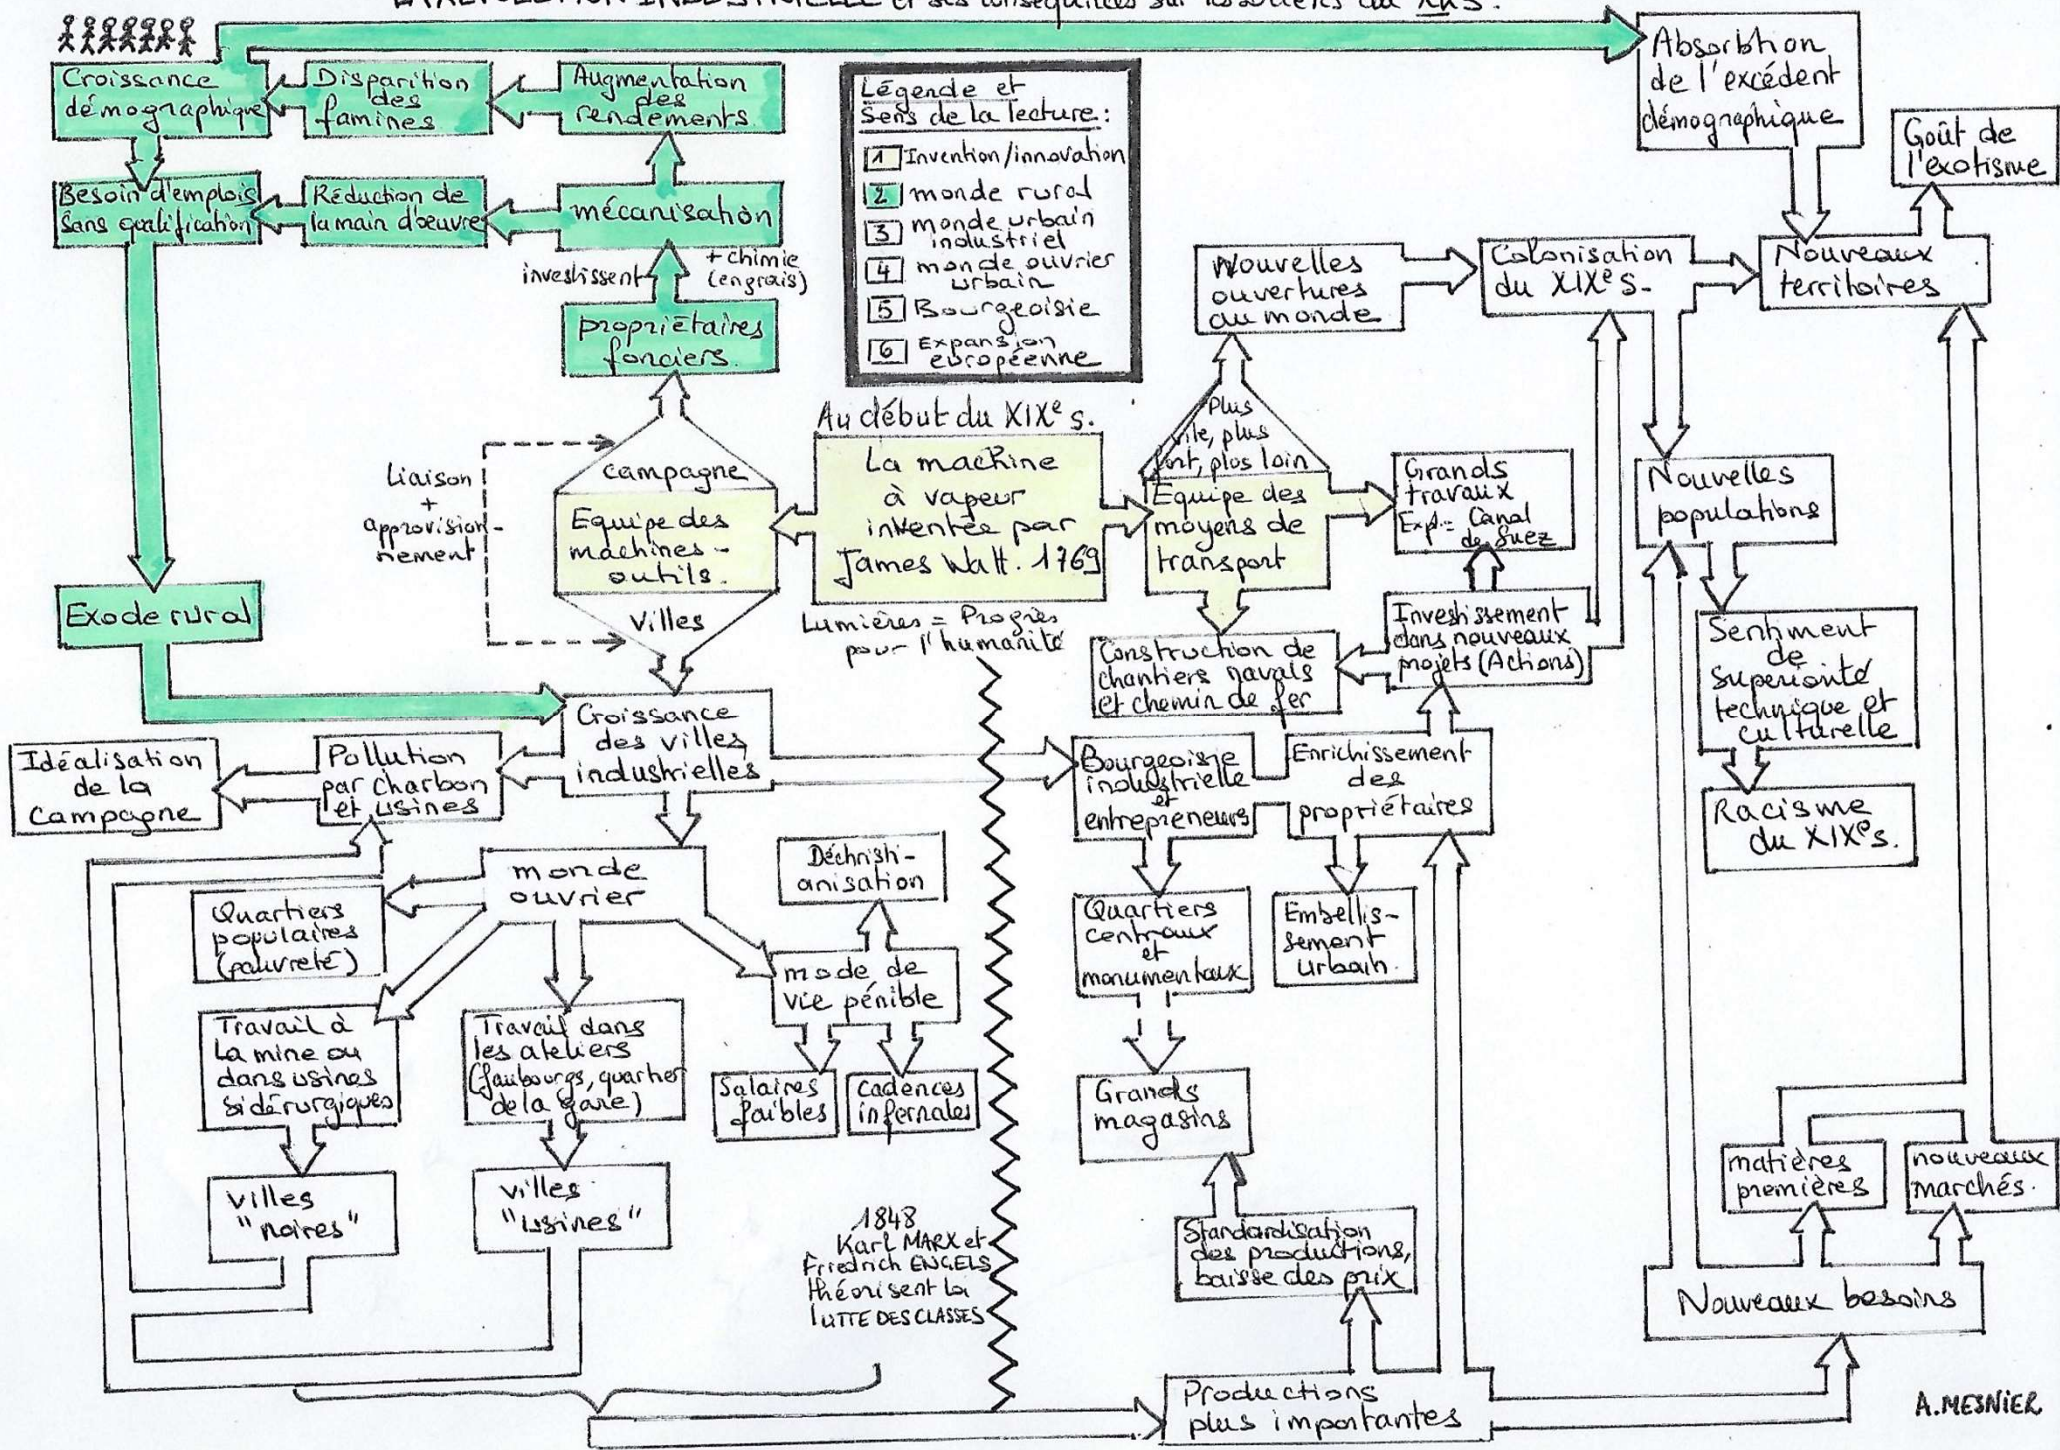 INDUSTRIELLE et ses conséquences sur les sociétés du XIXe S.
Croissance
démographique
Disparition
des
famines
Augmentation
des
rendements
Besoin d'emplois
sans qualification
Réduction de
la main d'oeuvre
mécanisation
investissent
+ chimie
(engrais)
propriétaires
fonciers.
Exode rural
Légende et
Sens de la lecture :
1 Invention/innovation
2 monde rural
3 monde urbain
industriel
4 monde ouvrier
urbain
5 Bourgeoisie
6 Expansion
européenne
Absorbtion
de l'excédent
démographique
Goût de
l'exotisme
Nouvelles
ouvertures
au monde
Colonisation
du XIXe s.
Nouveaux
territoires
Liaison
+
approvision-
nement
campagne
Equipe des
machines-
outils.
villes
Au début du XIXe s.
La machine
à vapeur
inventée par
James Watt. 1769
Lumières = Progrès
pour l'humanité
Plus
vite, plus
fort, plus loin
Equipe des
moyens de
transport
Grands
travaux
Exp.= Canal
de Suez
Nouvelles
populations
Construction de
chantiers navals
et chemin de fer
Investissement
dans nouveaux
projets (Actions)
Sentiment
de
supériorité
technique et
culturelle
Racisme
du XIXe s.
Idéalisation
de la
campagne
Pollution
par charbon
et usines
Croissance
des villes
industrielles
Bourgeoisie
industrielle
et
entrepreneurs
Enrichissement
des
propriétaires
monde
ouvrier
Déchristi-
anisation
Quartiers
populaires
(pauvreté)
mode de
vie pénible
Quartiers
centraux
et
monumentaux
Embellis-
sement
urbain.
Travail à
la mine ou
dans usines
sidérurgiques
Travail dans
les ateliers
(faubourgs, quartier
de la gare)
Salaires
faibles
cadences
infernales
Grands
magasins
villes
"noires"
villes
"usines"
1848
Karl MARX et
Friedrich ENGELS
théorisent la
LUTTE DES CLASSES
Standardisation
des productions,
baisse des prix
matières
premières
nouveaux
marchés.
Nouveaux besoins
Productions
plus importantes
A. MESNIER